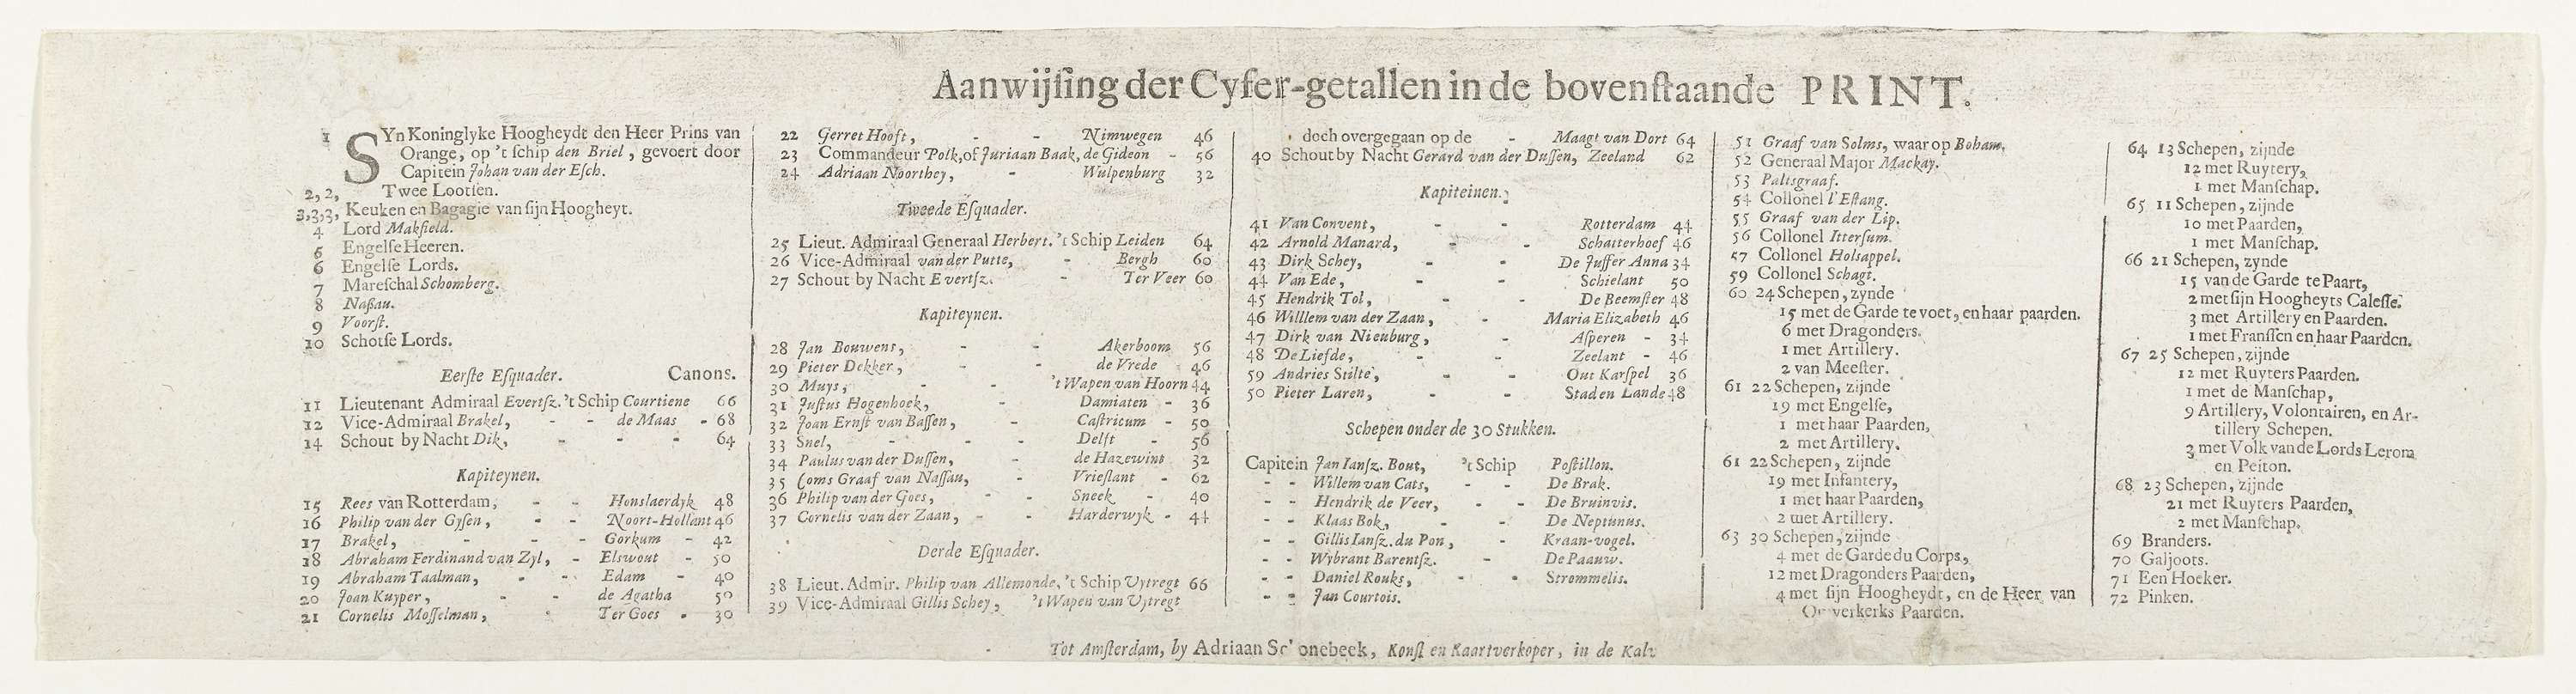 Aanwijſing der Cyfer-getallen in de bovenſtaande PRINT.
1 SYn Koninglyke Hoogheydt den Heer Prins van
Orange, op 't ſchip den Briel, gevoert door
Capitein Johan van der Eſch.
2, 2, Twee Lootſen.
3,3,3, Keuken en Bagagie van ſijn Hoogheyt.
4 Lord Makfield.
5 Engelſe Heeren.
6 Engelſe Lords.
7 Mareſchal Schomberg.
8 Naßau.
9 Voorſt.
10 Schotſe Lords.
Eerſte Eſquader. Canons.
11 Lieutenant Admiraal Evertſz. 't Schip Courtiene 66
12 Vice-Admiraal Brakel, - - de Maas - 68
14 Schout by Nacht Dik, - - - 64
Kapiteynen.
15 Rees van Rotterdam, - - Honslaerdyk 48
16 Philip van der Gyſen, - - Noort-Hollant 46
17 Brakel, - - - Gorkum - 42
18 Abraham Ferdinand van Zyl, - Elswout - 50
19 Abraham Taalman, - - Edam - 40
20 Joan Kuyper, - - de Agatha 50
21 Cornelis Moſſelman, - Ter Goes - 30
22 Gerret Hooft, - - Nimwegen 46
23 Commandeur Polk, of Juriaan Baak, de Gideon - 56
24 Adriaan Noorthey, - Wulpenburg 32
Tweede Eſquader.
25 Lieut. Admiraal Generaal Herbert. 't Schip Leiden 64
26 Vice-Admiraal van der Putte, - Bergh 60
27 Schout by Nacht Evertſz. - Ter Veer 60
Kapiteynen.
28 Jan Bouwens, - - Akerboom 56
29 Pieter Dekker, - - de Vrede 46
30 Muys, - - 't Wapen van Hoorn 44
31 Juſtus Hogenhoek, - Damiaten - 36
32 Joan Ernſt van Baſſen, - Caſtricum - 50
33 Snel, - - - Delft - 56
34 Paulus van der Duſſen, - de Hazewint 32
35 Coms Graaf van Naſſau, - Vrieſlant - 62
36 Philip van der Goes, - - Sneek - 40
37 Cornelis van der Zaan, - - Harderwyk - 44
Derde Eſquader.
38 Lieut. Admir. Philip van Allemonde, 't Schip Uytregt 66
39 Vice-Admiraal Gillis Schey, 't Wapen van Uytregt
doch overgegaan op de - Maagt van Dort 64
40 Schout by Nacht Gerard van der Duſſen, Zeeland 62
Kapiteinen.
41 Van Convent, - - Rotterdam 44
42 Arnold Manard, - - Schatterhoef 46
43 Dirk Schey, - - De Juffer Anna 34
44 Van Ede, - - Schielant 50
45 Hendrik Tol, - - De Beemſter 48
46 Willlem van der Zaan, - Maria Elizabeth 46
47 Dirk van Nieuburg, - Aſperen - 34
48 De Liefde, - - Zeelant - 46
59 Andries Stilte, - - Out Karſpel 36
50 Pieter Laren, - - Stad en Lande 48
Schepen onder de 30 Stukken.
Capitein Jan Ianſz. Bout, 't Schip Poſtillon.
- - Willem van Cats, - - De Brak.
- - Hendrik de Veer, - - De Bruinvis.
- - Klaas Bok, - - De Neptunus.
- - Gillis Ianſz. du Pon, - Kraan-vogel.
- - Wybrant Barentſz. - De Paauw.
- - Daniel Rouks, - - Strommelis.
- - Jan Courtois.
51 Graaf van Solms, waar op Boham.
52 Generaal Major Mackay.
53 Paltsgraaf.
54 Collonel l'Eſtang.
55 Graaf van der Lip.
56 Collonel Itterſum.
57 Collonel Holsappel.
59 Collonel Schagt.
60 24 Schepen, zynde
15 met de Garde te voet, en haar paarden.
6 met Dragonders.
1 met Artillery.
2 van Meeſter.
61 22 Schepen, zijnde
19 met Engelſe,
1 met haar Paarden,
2 met Artillery.
61 22 Schepen, zijnde
19 met Infantery,
1 met haar Paarden,
2 met Artillery.
63 30 Schepen, zijnde
4 met de Garde du Corps,
12 met Dragonders Paarden,
4 met ſijn Hoogheydt, en de Heer van
Ouwerkerks Paarden.
64 13 Schepen, zijnde
12 met Ruytery,
1 met Manſchap.
65 11 Schepen, zijnde
10 met Paarden,
1 met Manſchap.
66 21 Schepen, zynde
15 van de Garde te Paart,
2 met ſijn Hoogheyts Caleſſe.
3 met Artillery en Paarden.
1 met Franſſen en haar Paarden.
67 25 Schepen, zijnde
12 met Ruyters Paarden.
1 met de Manſchap,
9 Artillery, Volontairen, en Ar-
tillery Schepen.
3 met Volk van de Lords Lerom
en Peiton.
68 23 Schepen, zijnde
21 met Ruyters Paarden,
2 met Manſchap.
69 Branders.
70 Galjoots.
71 Een Hoeker.
72 Pinken.
Tot Amſterdam, by Adriaan Schoonebeek, Konſt en Kaartverkoper, in de Kalv